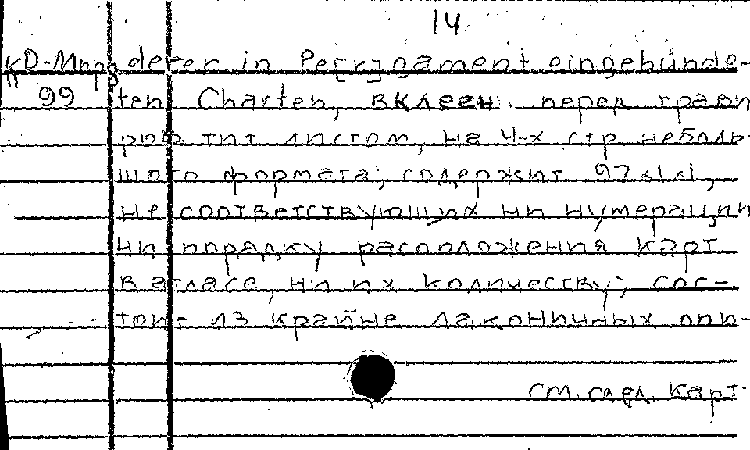 14
KD-Мпр derer in Pergament eingebunde-
99 ten Charten, вклеен перед грави
ров тит листом, на 4-х стр неболь-
шого формата; содержит 97 №№,
не соответствующих ни нумерации
ни порядку расположения карт
в атласе, ни их количеству; сос-
тоит из крайне лаконичных опи-
см. след. карт.